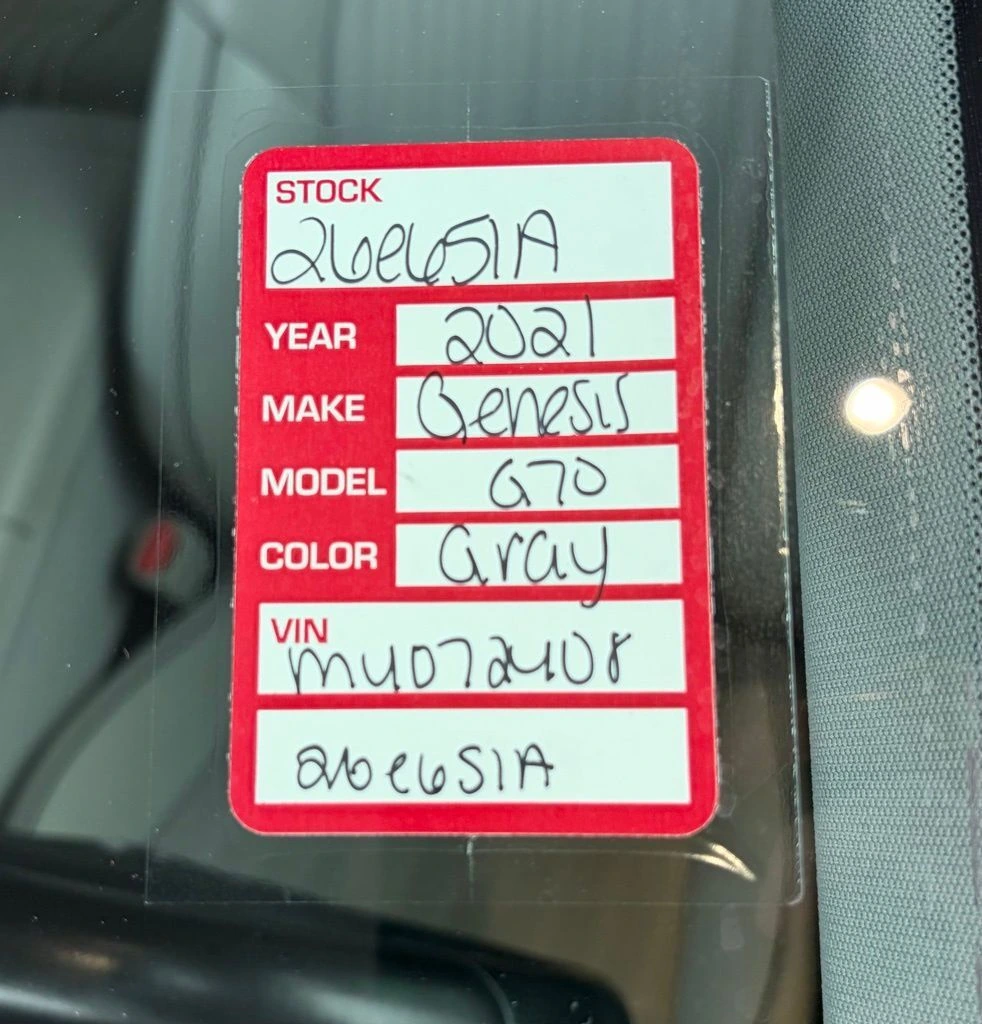 STOCK
26e651A
YEAR 2021
MAKE Genesis
MODEL G70
COLOR Gray
VIN
MU072408
26e651A